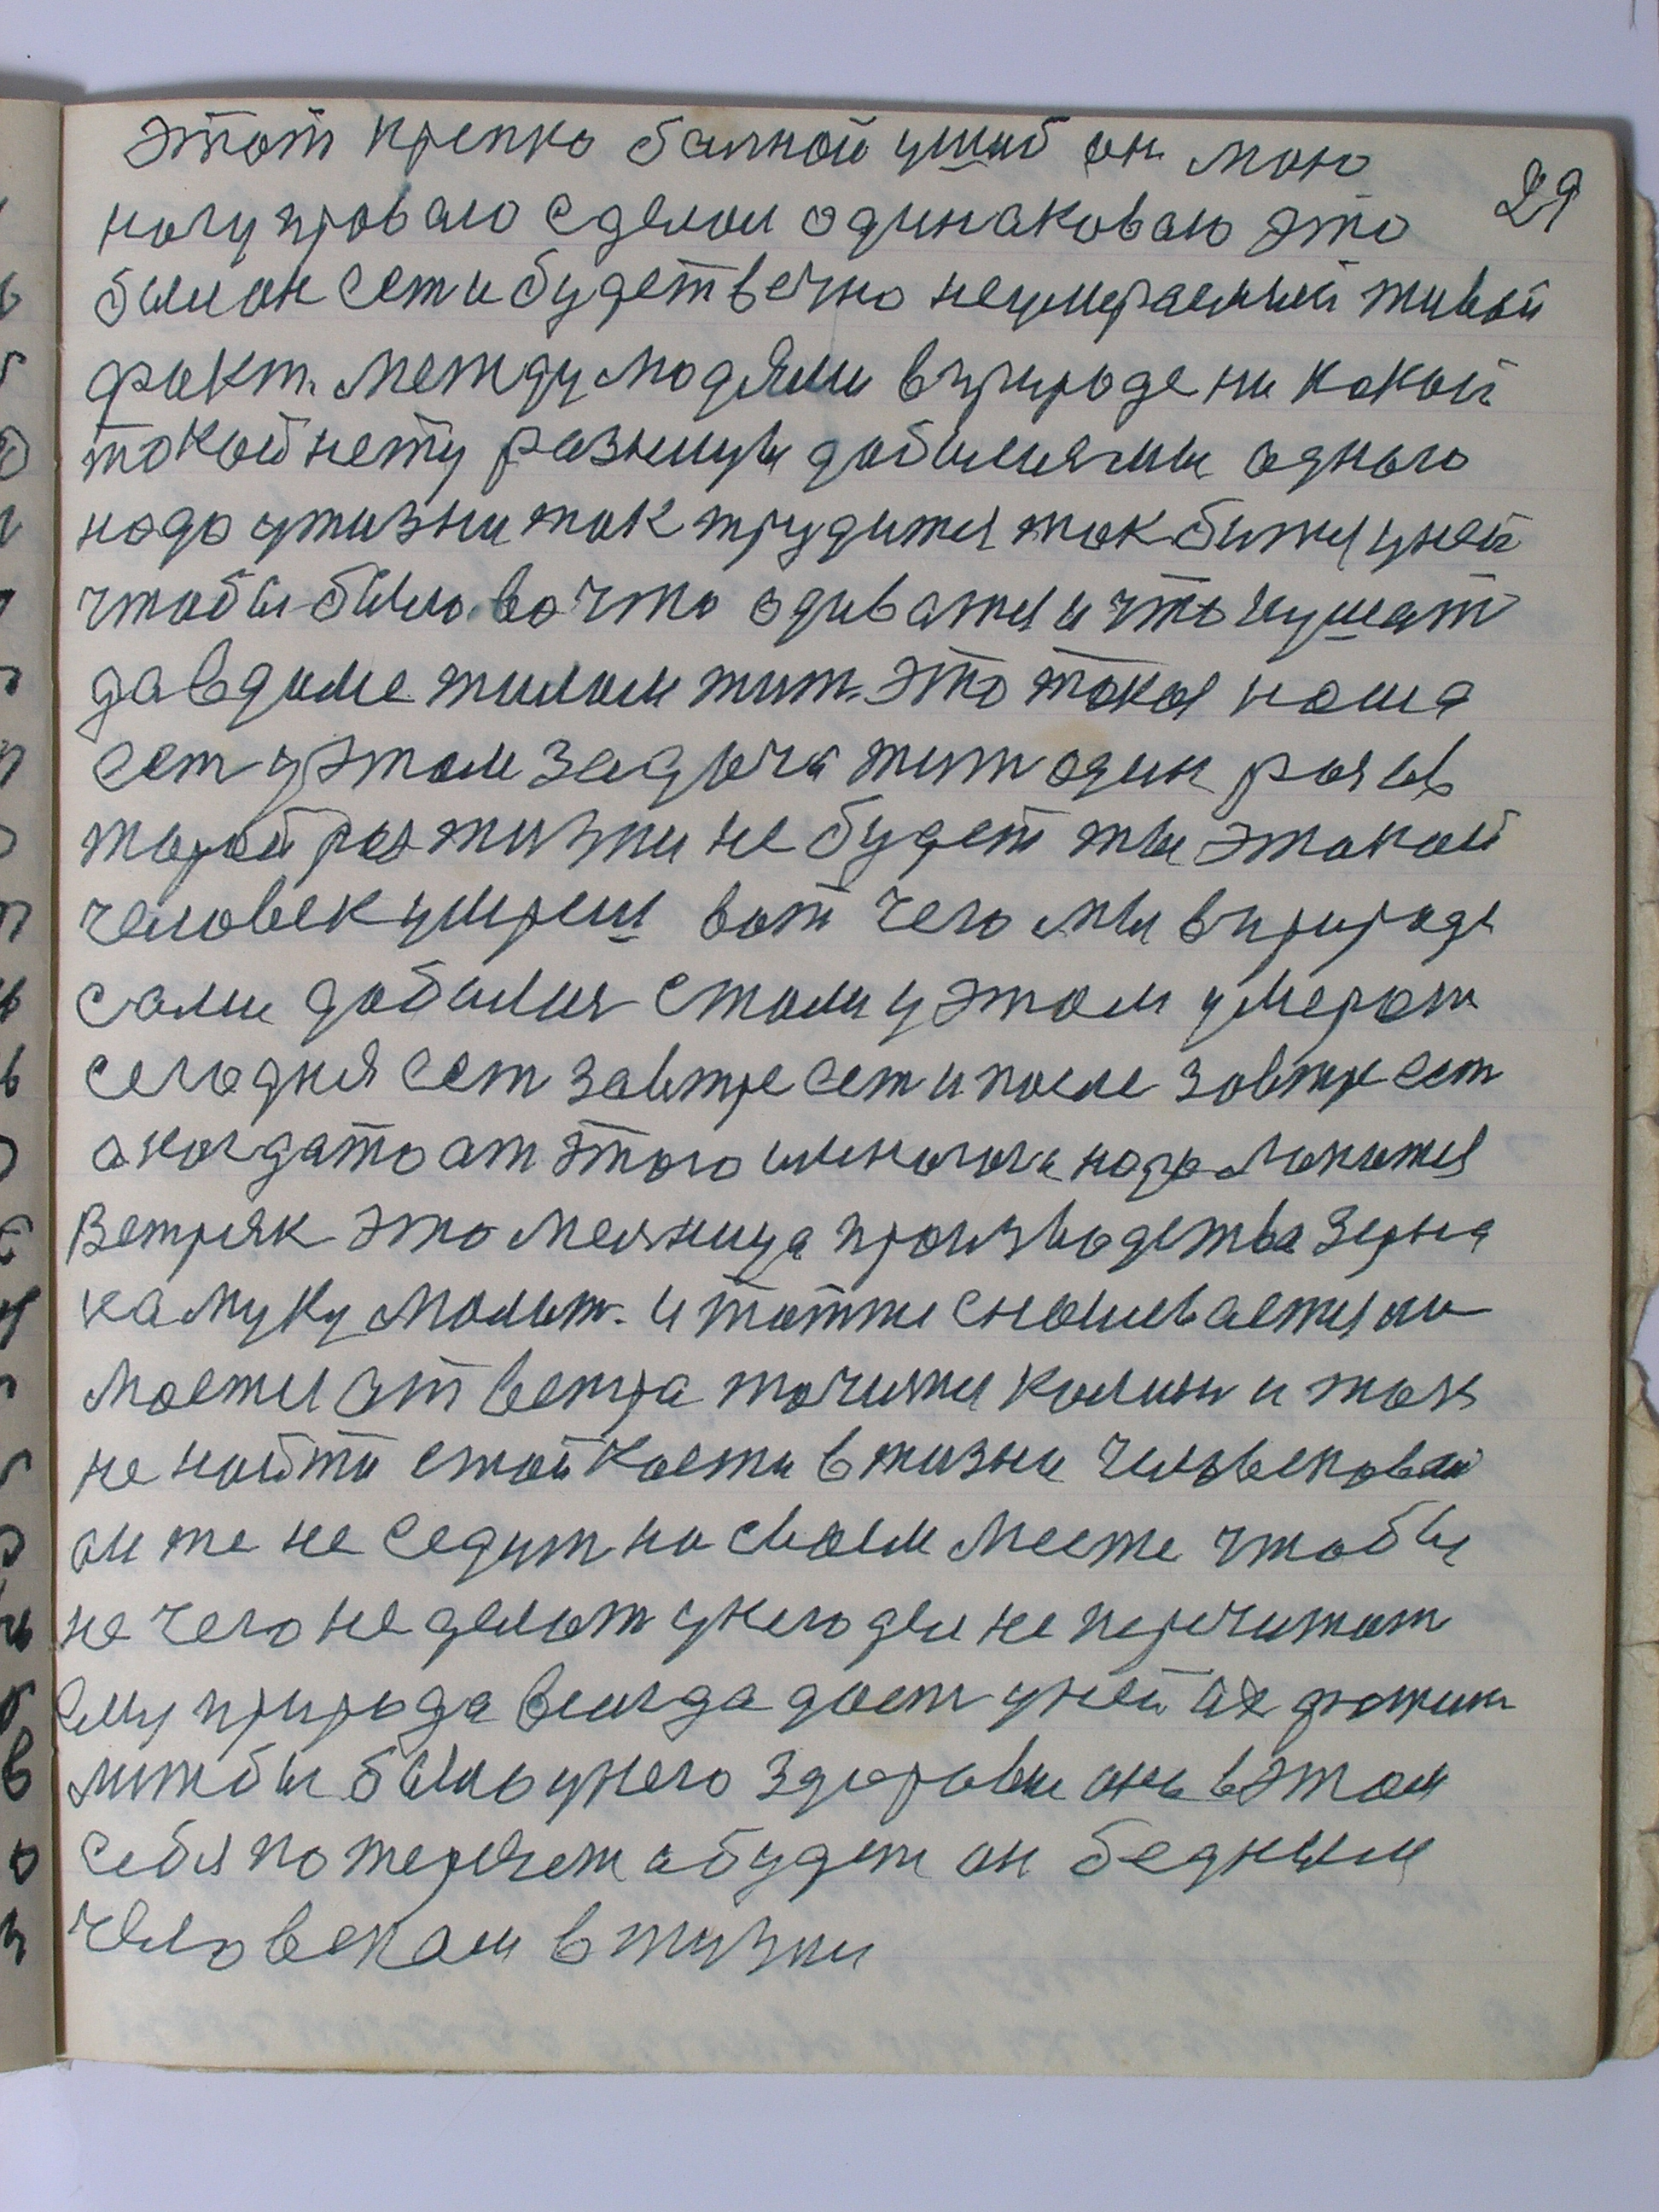 29
этот крепко балной ушиб он мою
ногу праваю сделал одинаковаю это
был он сет и будет вечно неумираемый живой
факт. Между людями в природе ни какой
токой нету разницы добилияни одного
надо у жизни так трудится так битя у ней
чтобы было во что одеватя и что кушат
да в доме жилом жит. это токая наша
сет у этом задача жит один рая в
торой рая жизни не будет ты этакой
человек умреш вот чего мы в природе
сами добилия стали у этом умерат
сегодня сет завтре сет и после завтре сет
а когдато от этого надо
Ветряк это меляница производства зерна
ка муку молот. и тотже снашивается ло
мается от ветра точится камин и так
не найти стойкости в жизни человековой
он же не седит на своем месте чтобы
не чего не делат у него дел не перечитат
ему природа всегда дает у ней
лижбы было у него здоровие он в этом
себя потеряет а будет он бедным
человеком в жизни